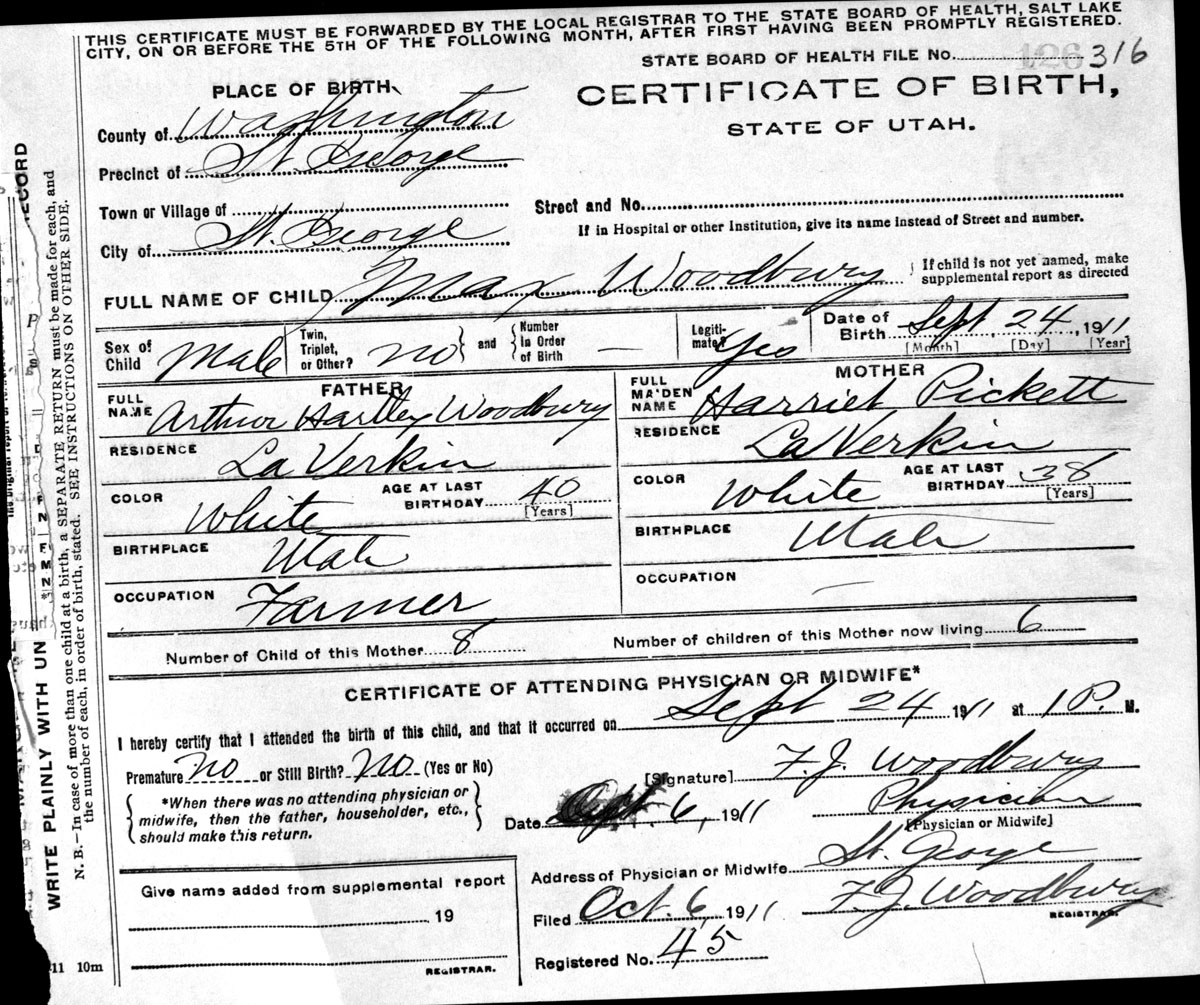 THIS CERTIFICATE MUST BE FORWARDED BY THE LOCAL REGISTRAR TO THE STATE BOARD OF HEALTH, SALT LAKE
CITY, ON OR BEFORE THE 5TH OF THE FOLLOWING MONTH, AFTER FIRST HAVING BEEN PROMPTLY REGISTERED.
STATE BOARD OF HEALTH FILE No. 126 316
PLACE OF BIRTH
CERTIFICATE OF BIRTH,
STATE OF UTAH.
County of Washington
Precinct of St. George
Town or Village of
Street and No.
If in Hospital or other Institution, give its name instead of Street and number.
City of St. George
FULL NAME OF CHILD Max Woodbury
If child is not yet named, make
supplemental report as directed
Sex of Child Male
Twin, Triplet, or Other? no
and Number In Order of Birth —
Legiti-mate? Yes
Date of Birth Sept 24, 1911
[Month] [Day] [Year]
FATHER
FULL NAME Arthur Hartley Woodbury
RESIDENCE La Verkin
COLOR White
AGE AT LAST BIRTHDAY 40
[Years]
BIRTHPLACE Utah
OCCUPATION Farmer
MOTHER
FULL MAIDEN NAME Harriet Pickett
RESIDENCE La Verkin
COLOR White
AGE AT LAST BIRTHDAY 38
[Years]
BIRTHPLACE Utah
OCCUPATION —
Number of Child of this Mother 8
Number of children of this Mother now living 6
CERTIFICATE OF ATTENDING PHYSICIAN OR MIDWIFE*
I hereby certify that I attended the birth of this child, and that it occurred on Sept 24 1911 at 1 P. M.
Premature no or Still Birth? no (Yes or No)
*When there was no attending physician or
midwife, then the father, householder, etc.,
should make this return.
[Signature] F. J. Woodbury
Physician
[Physician or Midwife]
Date Oct. 6, 1911
Address of Physician or Midwife St. George
Give name added from supplemental report
19
REGISTRAR.
Filed Oct. 6, 1911
F. J. Woodbury
REGISTRAR.
Registered No. 45
11 10m
WRITE PLAINLY WITH UN
RECORD
N. B.—In case of more than one child at a birth, a SEPARATE RETURN must be made for each, and
the number of each, in order of birth, stated. SEE INSTRUCTIONS ON OTHER SIDE.